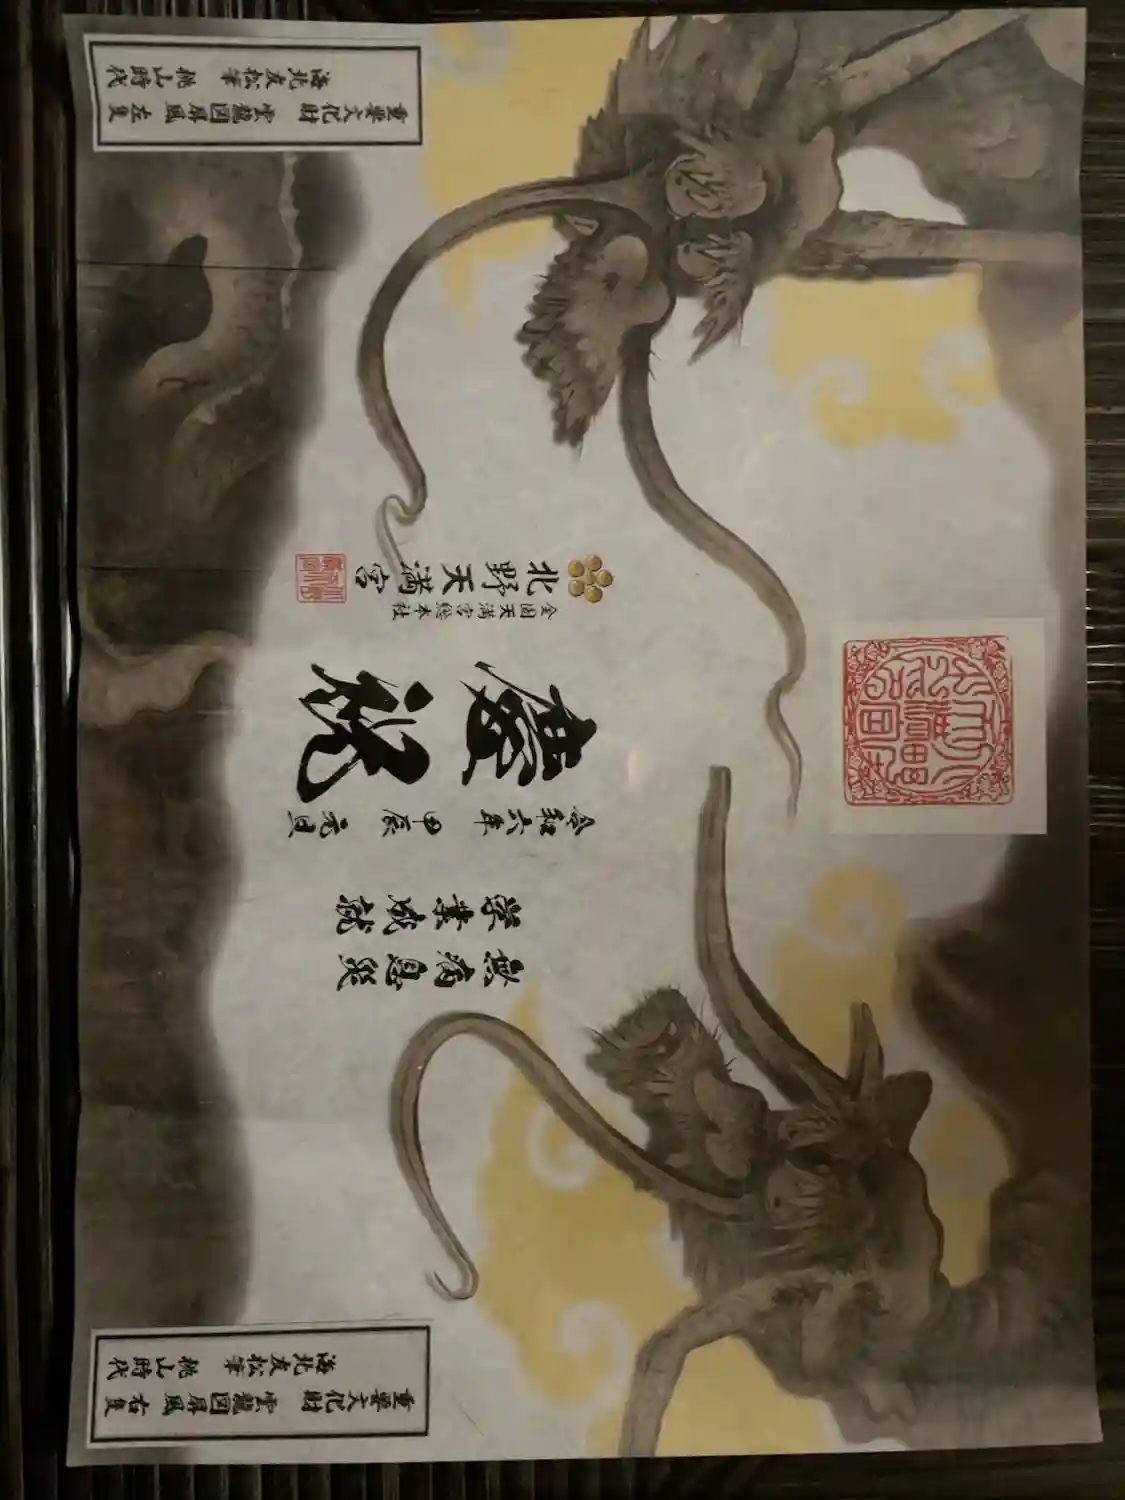 重要文化財 雲龍図屏風 右隻
海北友松筆 桃山時代
無病息災
学業成就
令和六年 甲辰 元旦
慶祝
全国天満宮総本社
北野天満宮
重要文化財 雲龍図屏風 左隻
海北友松筆 桃山時代